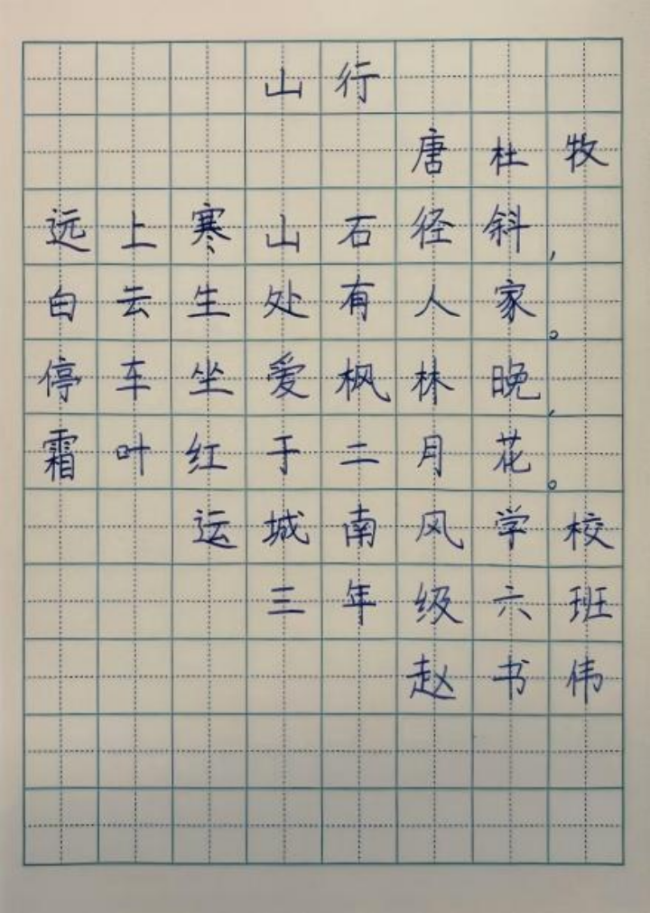 山行
唐杜牧
远上寒山石径斜,
白云生处有人家。
停车坐爱枫林晚,
霜叶红于二月花。
运城南风学校
三年级六班
赵书伟